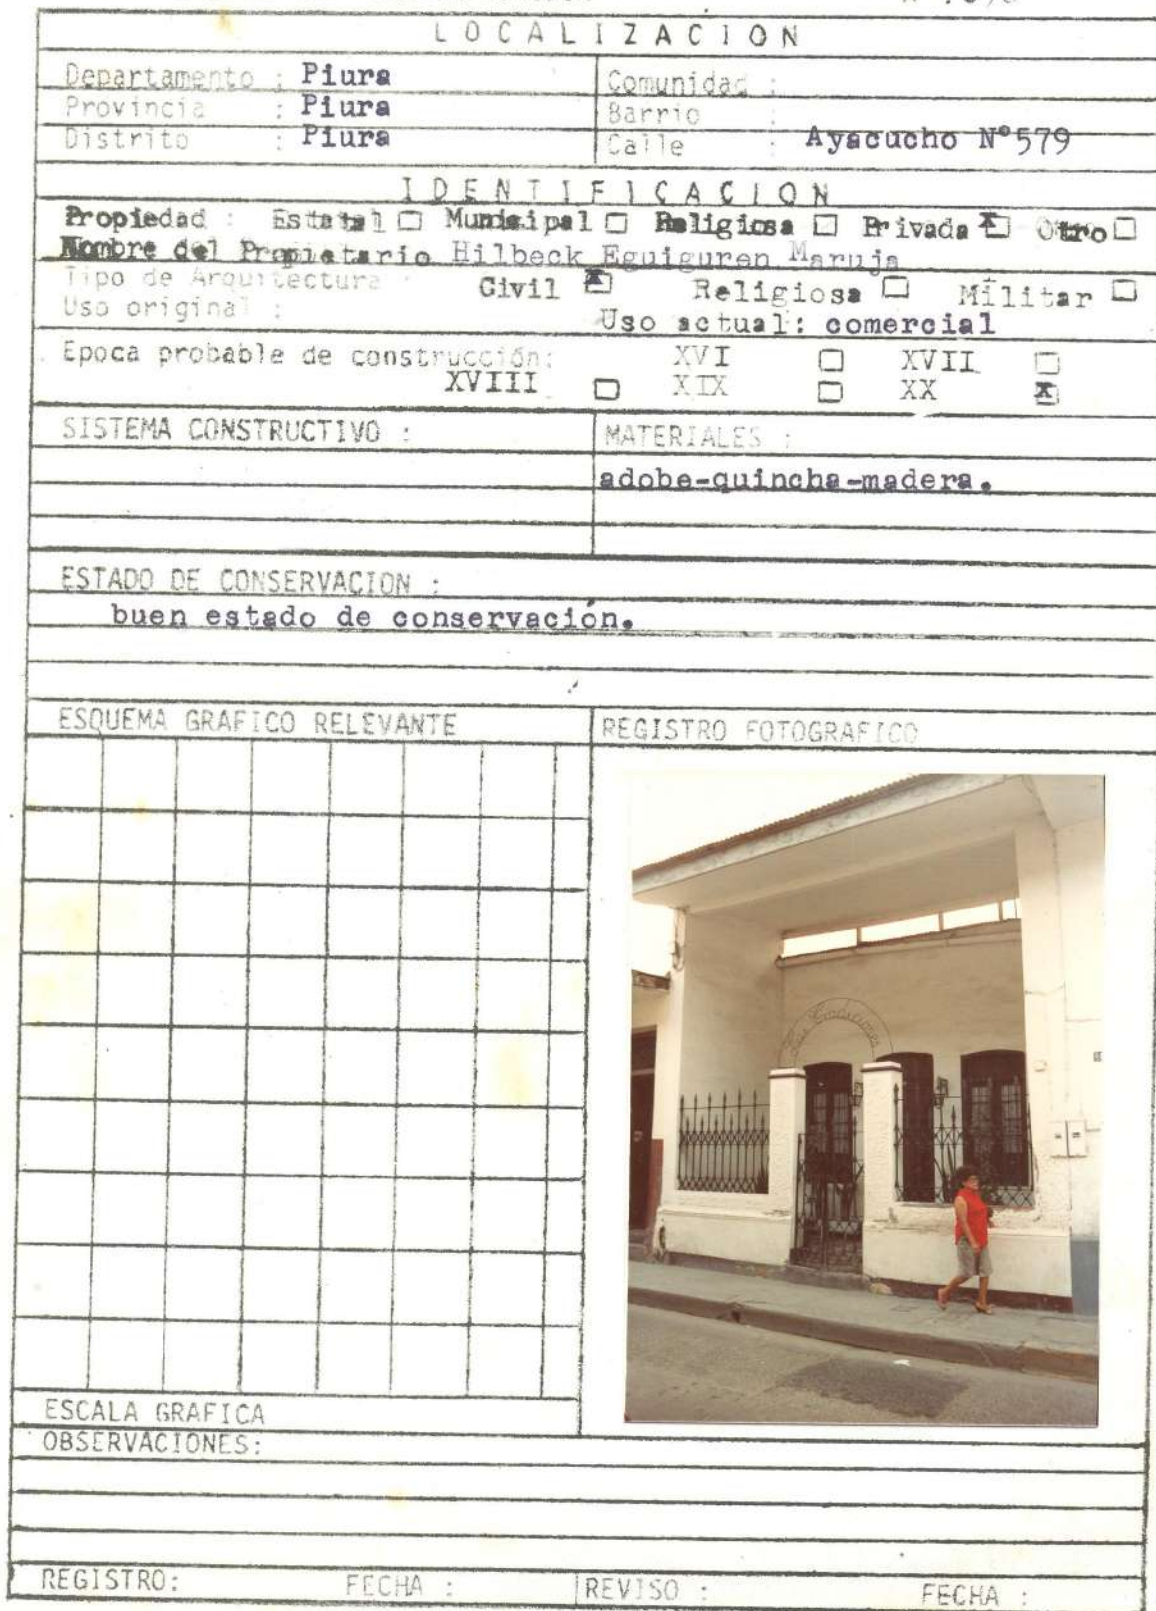 LOCALIZACION
Departamento : Piura
Comunidad :
Provincia : Piura
Barrio :
Distrito : Piura
Calle : Ayacucho N°579
IDENTIFICACION
Propiedad : Estatal ☐ Municipal ☐ Religiosa ☐ Privada ☒ Otro ☐
Nombre del Propietario Hilbeck Eguiguren Maruja
Tipo de Arquitectura : Civil ☒ Religiosa ☐ Militar ☐
Uso original :
Uso actual: comercial
Epoca probable de construcción: XVI ☐ XVII ☐
XVIII ☐ XIX ☐ XX ☒
SISTEMA CONSTRUCTIVO :
MATERIALES :
adobe-quincha-madera.
ESTADO DE CONSERVACION :
buen estado de conservación.
ESQUEMA GRAFICO RELEVANTE
REGISTRO FOTOGRAFICO
ESCALA GRAFICA
OBSERVACIONES:
REGISTRO: FECHA : REVISO : FECHA :